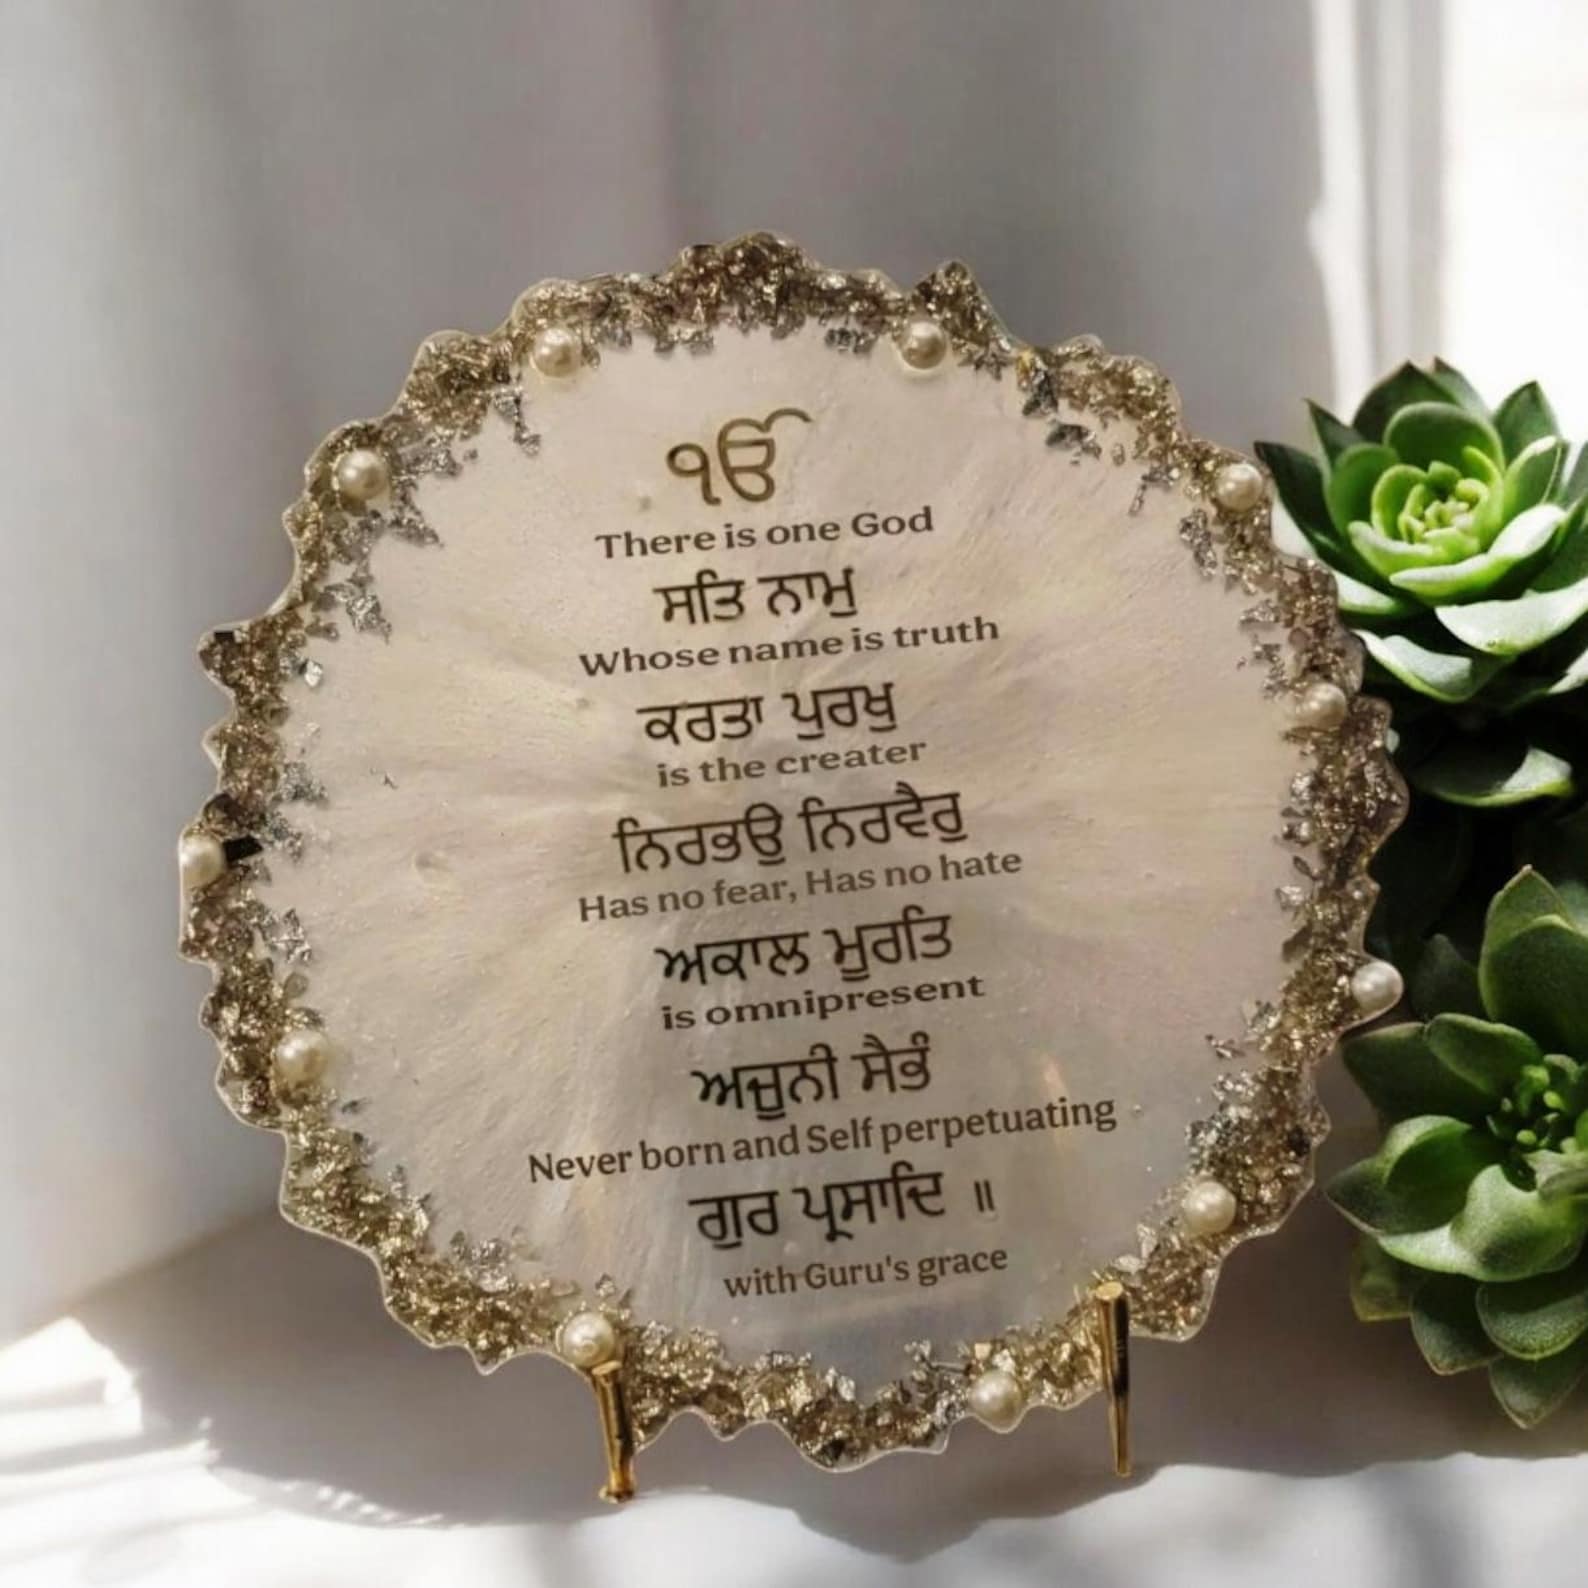 ੴ
There is one God
ਸਤਿ ਨਾਮੁ
Whose name is truth
ਕਰਤਾ ਪੁਰਖੁ
is the creater
ਨਿਰਭਉ ਨਿਰਵੈਰੁ
Has no fear, Has no hate
ਅਕਾਲ ਮੂਰਤਿ
is omnipresent
ਅਜੂਨੀ ਸੈਭੰ
Never born and Self perpetuating
ਗੁਰ ਪ੍ਰਸਾਦਿ ॥
with Guru's grace